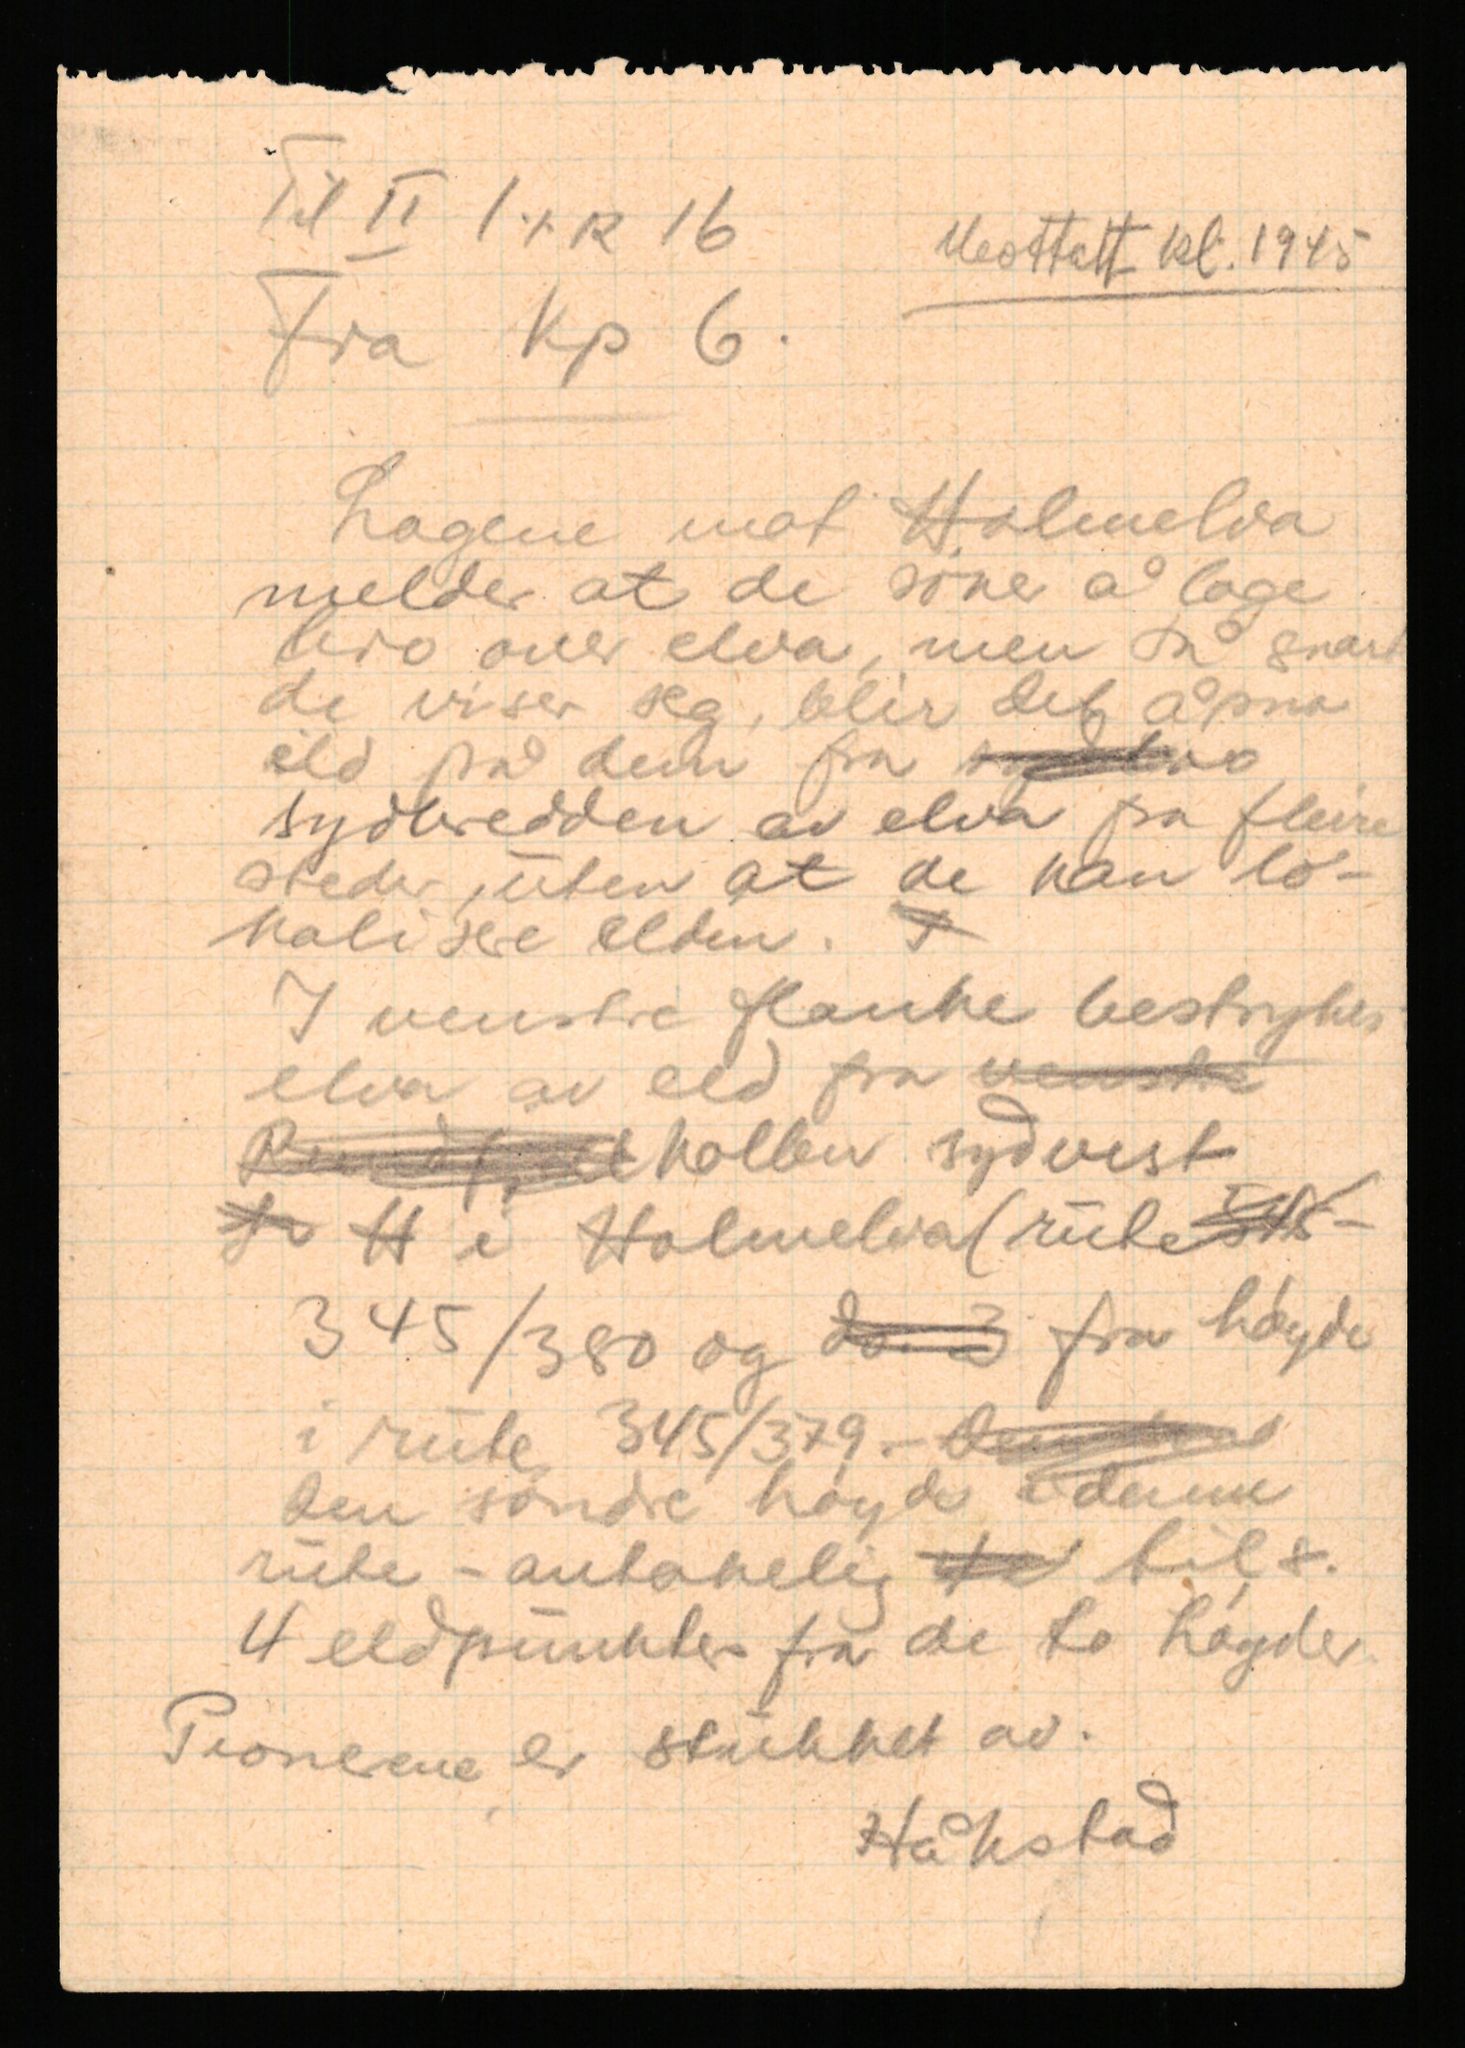 Til II I.R 16
Mottatt kl. 1945
Fra Kp 6.
Lagene mot Holmelva
melder at de söker å lage
bro over elva, men så snart
de viser seg, blir det åpna
eld på dem fra
sydbredden av elva fra fleire
steder, uten at de kan lo-
kalisere elden.
I venstre flanke bestrykes
elva av eld fra venstre
kollen sydvest
H i Holmelva (rute
345/380 og fra høyde
i rute 345/379. -
den söndre høyde i denne
rute - antakelig til s.
4 eldpunkter fra de to høyder.
Pionerene er stukket av.
Håkstad